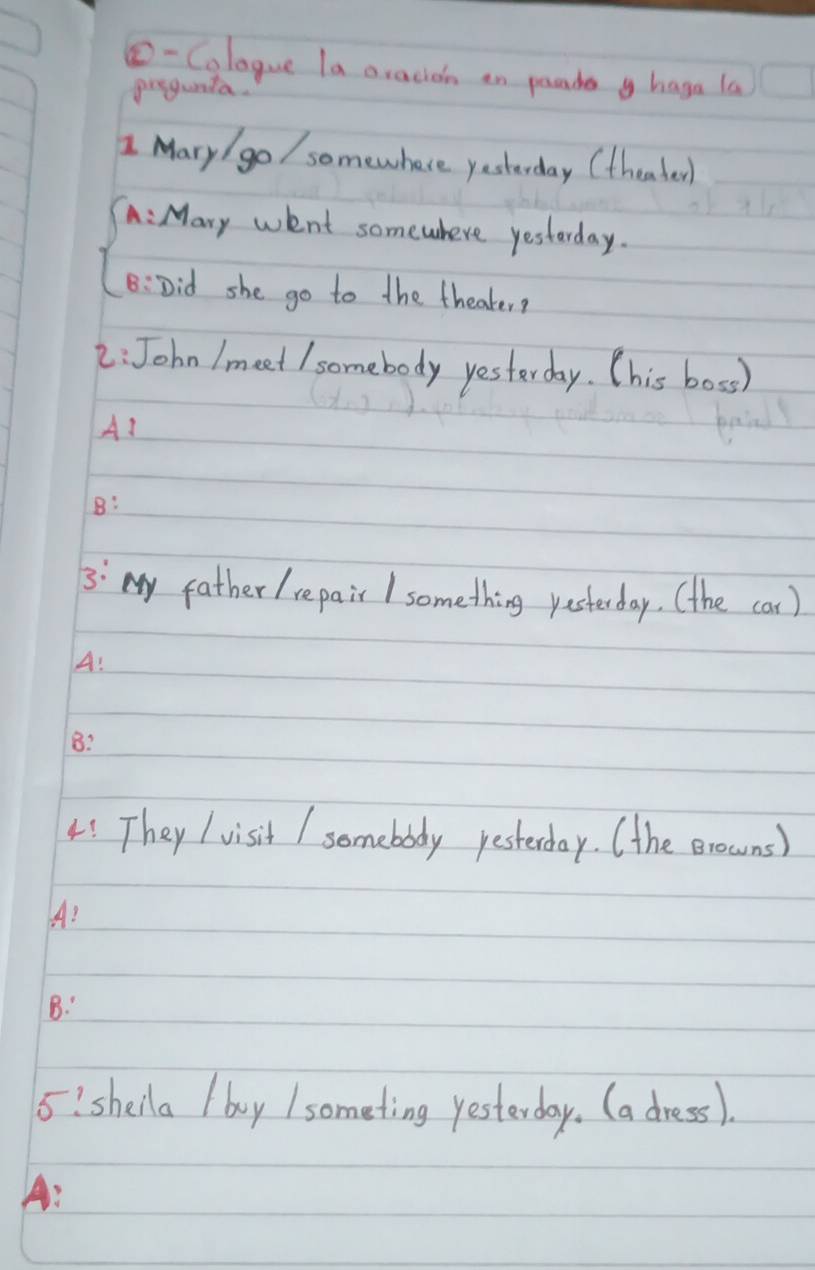 ②-Cologue la oración en pasado y haga la
pregunta.
1 Mary/go/somewhere yesterday (theater)
A: Mary went somewhere yesterday.
B: Did she go to the theater?
2: John/meet/somebody yesterday. (his boss)
A:
B:
3: My father/repair/something yesterday. (the car)
A:
B:
4: They/visit/somebody yesterday. (the Browns)
A:
B:
5: sheila/buy/someting yesterday. (a dress).
A: